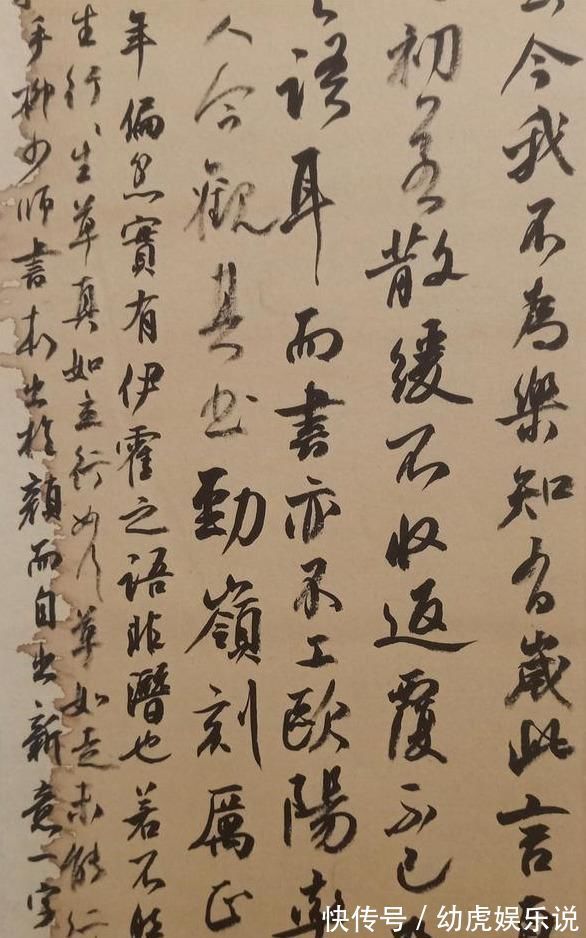 今我不為樂知有歲此言
初若散緩不收返覆不已
語耳而書亦不工歐陽率
人今觀其書勁嶺刻厲正
年偏忽實有伊霍之語非譖也若不然
生行行生草真如立行如行草如走未能行
手柳少師書本出於顏而自出新意一字
快传号 / 幼虎娱乐说